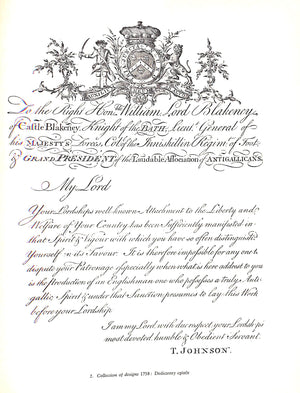 To the Right Hon.ble William Lord Blakeney
of Castle Blakeney, Knight of the BATH, Lieut. General of
his MAJESTY'S Forces, Col. of the Inniskillen Regim.t of Foot
& GRAND PRESIDENT of the Laudable Association of ANTIGALLICANS.
My Lord
Your Lordships well known Attachment to the Liberty and
Welfare of Your Country has been Sufficiently manifested in
that Spirit & Vigour with which you have so often distinguish'd
Yourself in its Favour. It is therefore impossible for any one to
dispute your Patronage especially when what is here addrest to you
is the Production of an Englishman one who possesses a truly Ante-
gallic Spirit & under that Sanction presumes to lay this Work
before your Lordship
I am my Lord with due respect your Lordships
most devoted humble & Obedient Servant
T. JOHNSON.
5. Collection of designs 1758: Dedicatory epistle